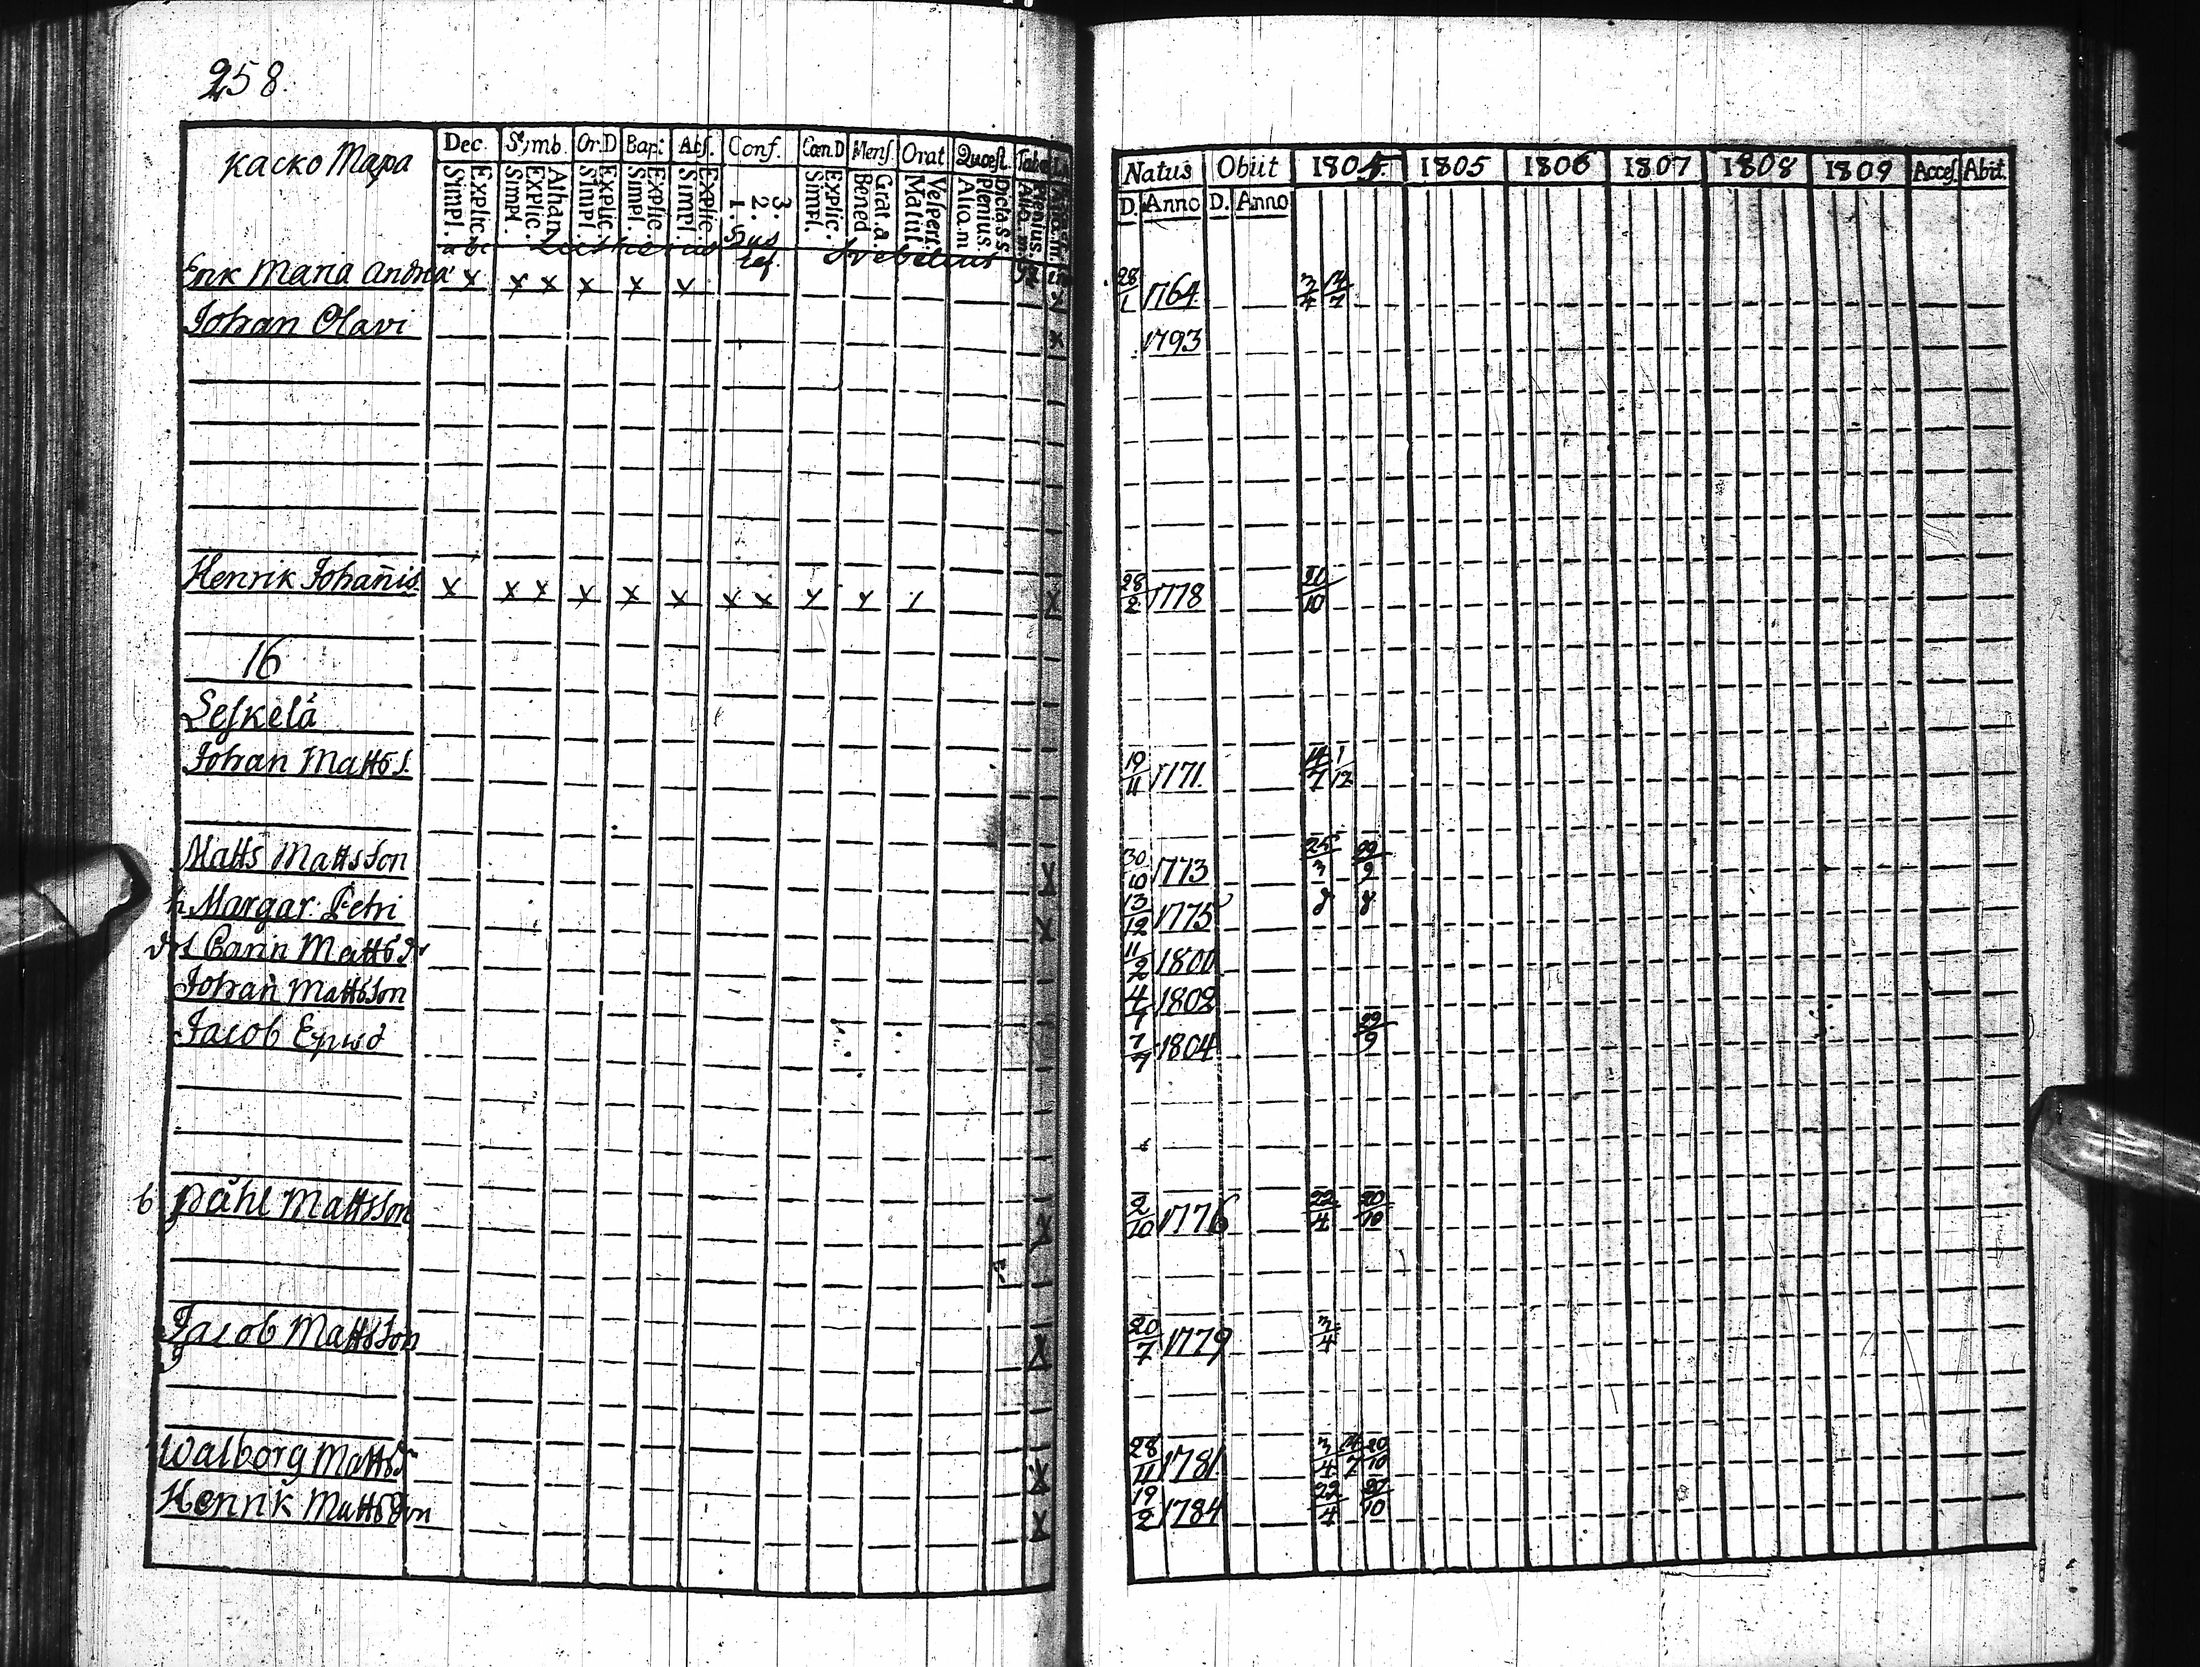 258.
Kacko Mapa
Dec. Symb. Or.D Bap: Abs. Conf. Cœn.D Mens. Orat. Quæst. Taba
Simpl. Explic. Simpl. Explic. Athan. Simpl. Explic. Simpl. Explic. Simpl. Explic. 1. 2. 3. Simpl. Explic. Bened Grat.a. Matut Vespert. Alio.m Plenius. Dicta S.S. Alio.m Plenius.
a b c Lutherus Hus taf. Svebelius
Natus Obiit 1804. 1805 1806 1807 1808 1809 Acces. Abit.
D. Anno D. Anno
Enk Maria Andreæ x x x x x x x 28/1 1764 3/4 14/7
Johan Olavi x 1793
Henrik Johannis. x x x x x x x x x x x x 28/2 1778 21/10
16
Seskelä
Johan Matts S. 19/11 1771. 14/7 1/12
Matts Mattsson x 30/10 1773 25/3 29/9
h Margar: Petri x 13/12 1775
drs Carin Matts dr 11/2 1800
Johan Mattsson 4/7 1802
Jacob 7/7 1804 29/9
b Påhl Mattsson x 2/10 1776 22/4 20/10
Jacob Mattsson x 20/7 1779 3/4
Walborg Matts dr x 28/11 1781 3/4 14/7 20/10
Henrik Mattsson x 19/2 1784 22/4 27/10